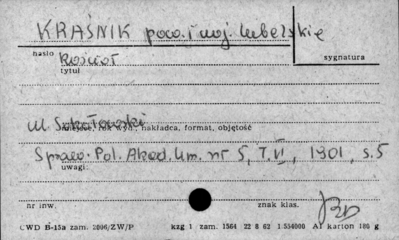 KRAŚNIK pow. i woj. lubelskie
hasło kościół sygnatura
tytuł
M. Sokołowski
nakładca, format, objętość
Spraw. Pol. Akad. Um. nr 5, T. VI, 1901, s. 5
uwagi
nr inw. znak klas.
CWD B-15a zam. 2006/ZW/P kzg 1 zam. 1564 22 8 62 1.554000 A1 karton 180 g